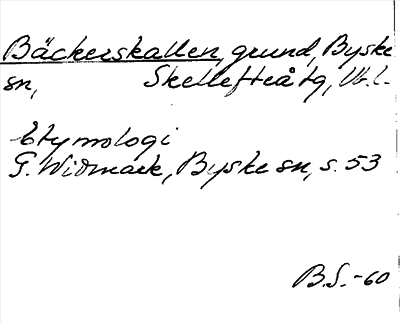 Bäckerskallen, grund, Byske
sn, Skellefteå tg, Vb.l.
Etymologi
G. Widmark, Byske sn, s. 53
B.S. -60